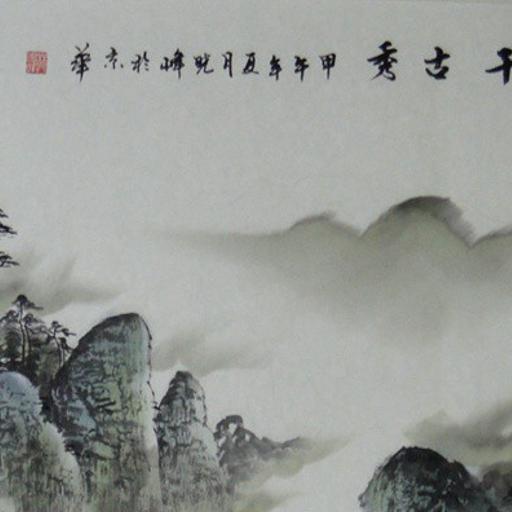 千古秀 甲午年夏月晓峰於京華